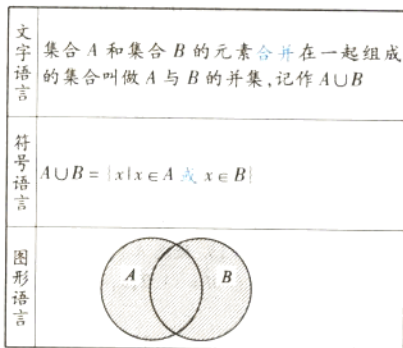 文字语言
集合 A 和集合 B 的元素合并在一起组成
的集合叫做 A 与 B 的并集,记作 A∪B
符号语言
A∪B={x|x∈A 或 x∈B}
图形语言
A
B